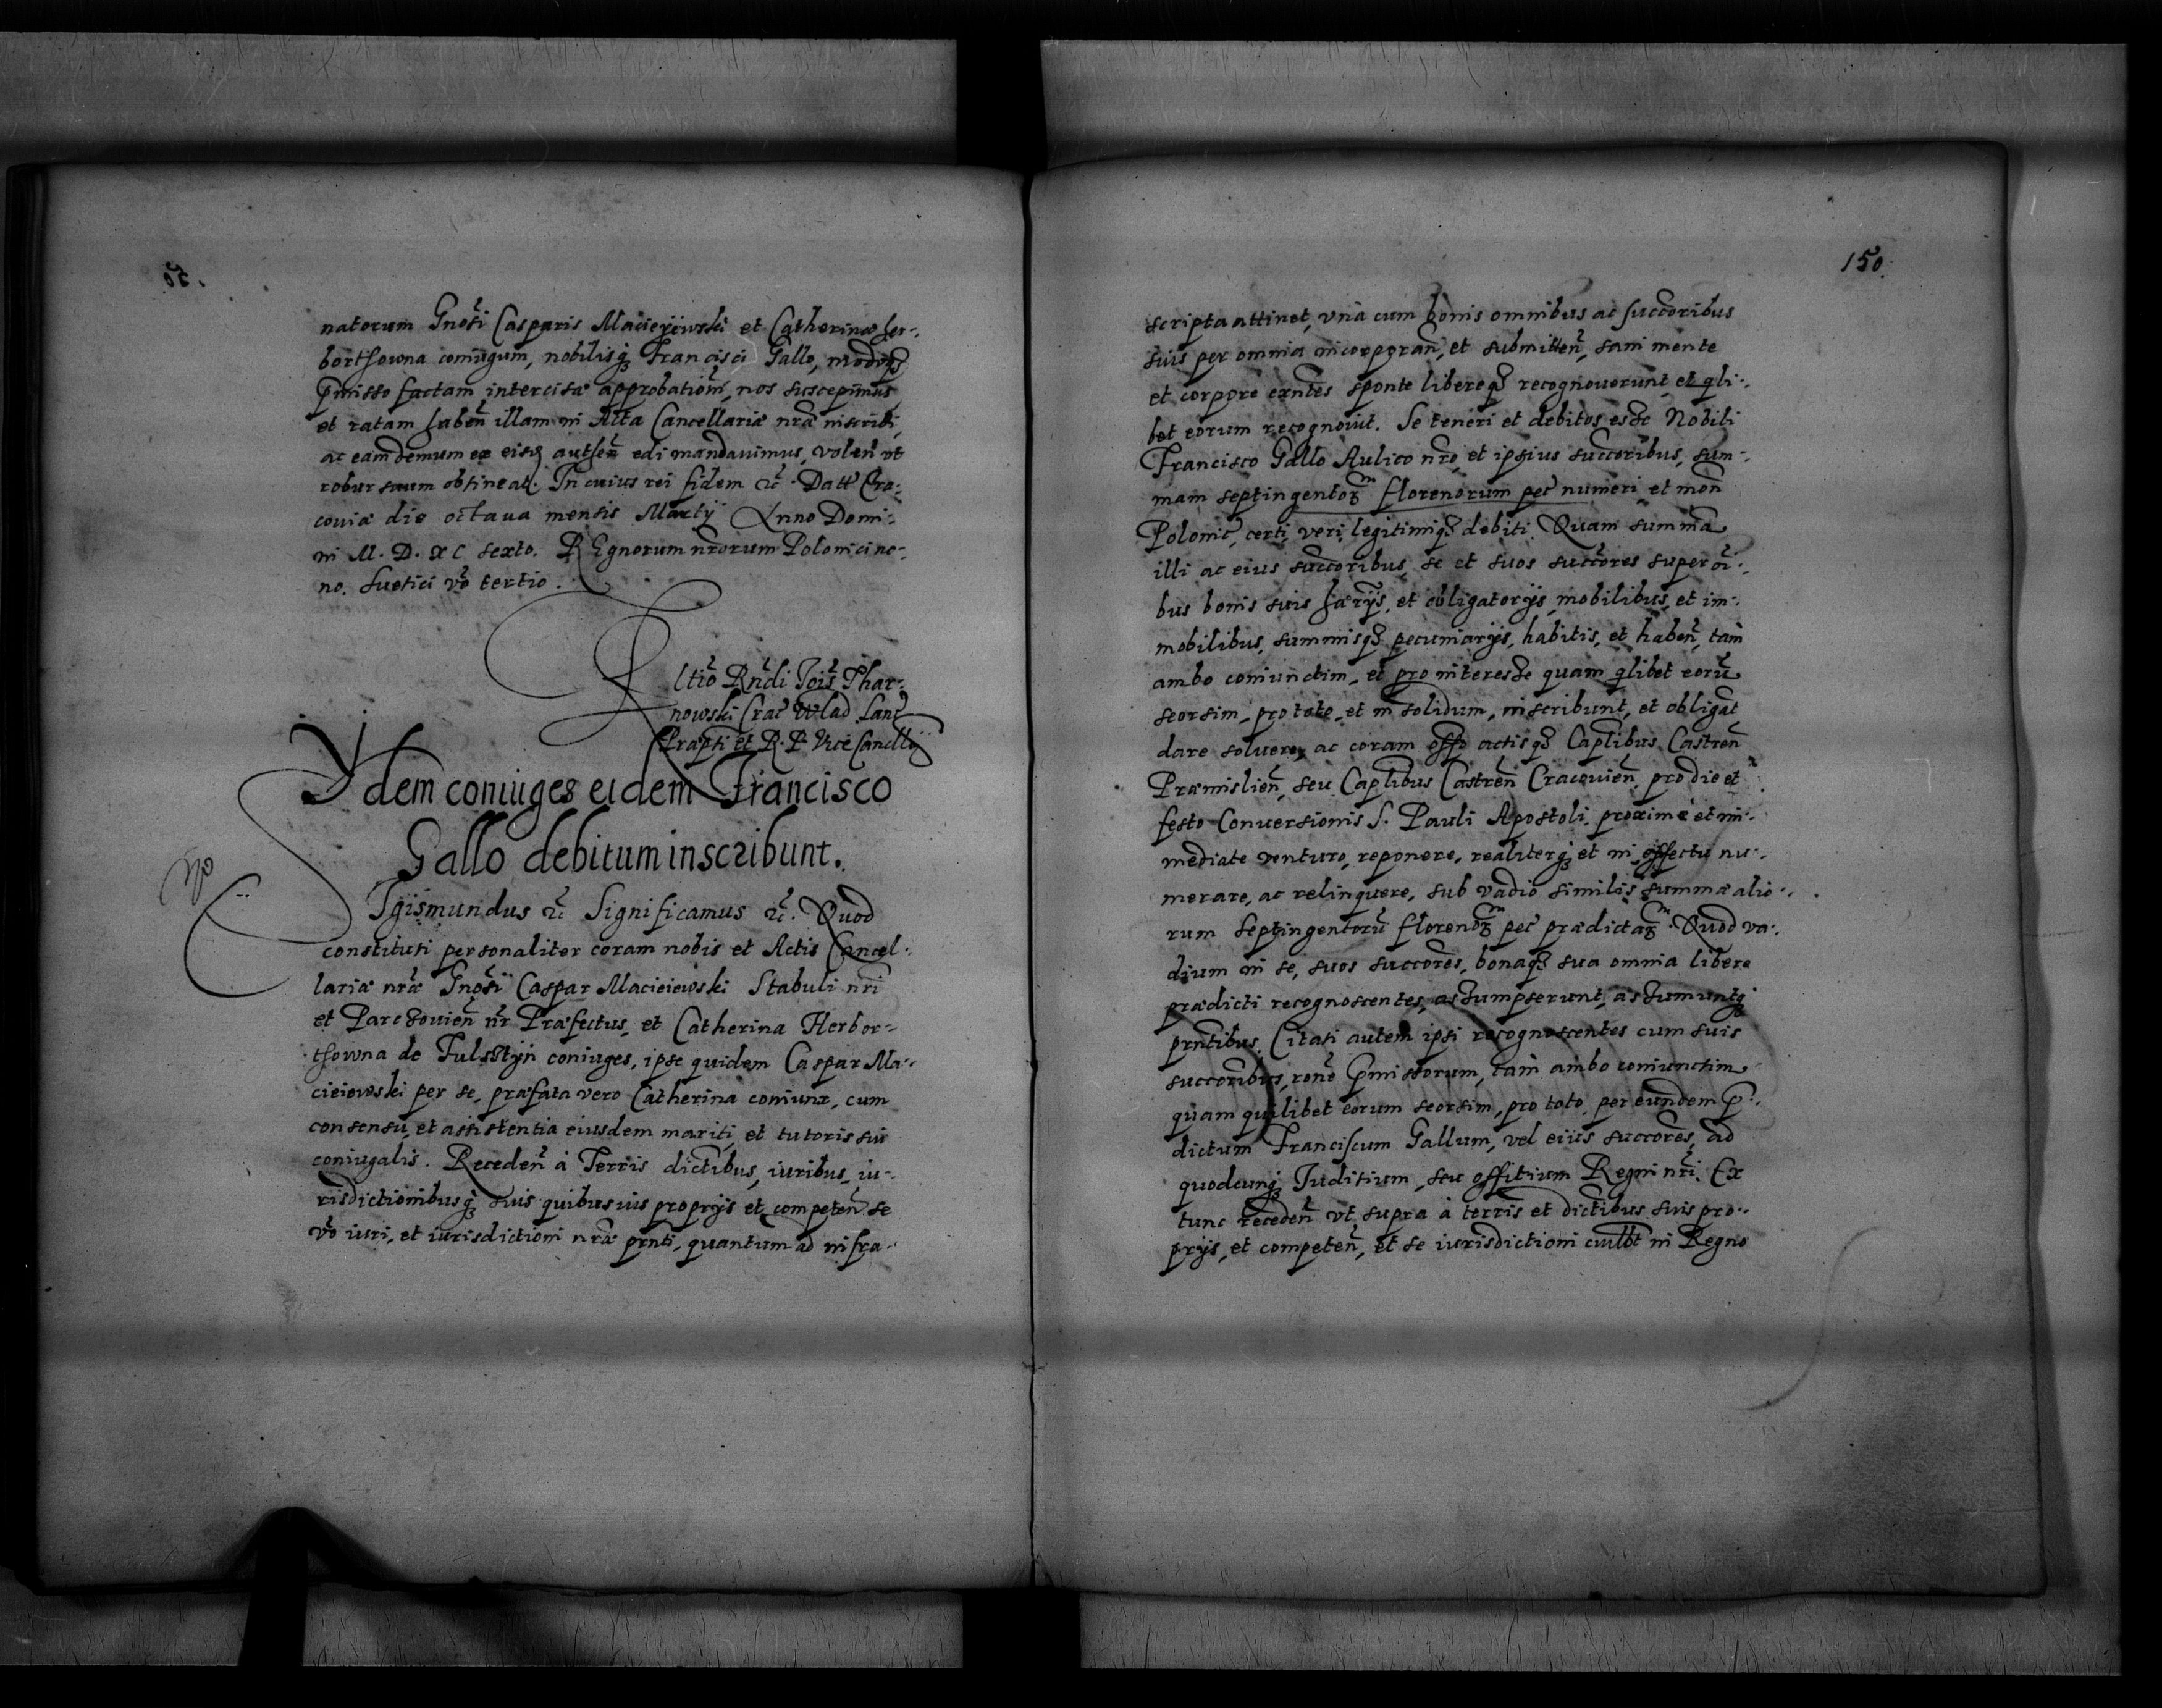 natorum Gnosi Casparis Macieyiewski et Catherinæ Her-
borthowna coniugum, nobilisq̃ Francisci Gallo, modo
p̃misso factam intercisæ approbationẽ, nos suscepimus
et ratam habeñ illam in Acta Cancellariæ nræ inscribi,
ac eam demum ex eisd autheñ edi mandauimus, volen̄ vt
robur suum obtineat. In cuius rei fidem etc̃. Datt Cra-
couiæ die octaua mensis Martij Anno Domi-
ni M. D. XC sexto. REgnorum nrorum Polonici no-
no. Suetici vo tertio.
Rltio Rndi Jois Thar-
nowski Crac Wlad Lanc
Præpti et R. P. Vice Cancllrij
Ydem coniuges eidem Francisco
Gallo debitum inscribunt.
SIgismundus etc̃ Significamus etc̃. Quod
constituti personaliter coram nobis et Actis Cancel-
lariæ nræ Gnosi Caspar Macieiewski Stabuli nri
et Parczouien̄ nr Præfectus, et Catherina Herbor-
thowna de Fulsztyn coniuges, ipse quidem Caspar Ma-
cieiewski per se, præfata vero Catherina coniunx, cum
consensu, et assistentia eiusdem mariti, et tutoris sui
coniugalis. Receden̄ à Terris dictibus, iuribus, iu-
risdictionibusq̃ suis quibusuis proprijs et competen̄ se
vo iuri, et iurisdictioni nræ prnti, quantum ad infra-
150.
scripta attinet, vnà cum bonis omnibus ac succoribus
suis per omnia incorporan̄, et submitten̄, sani mente
et corpore exntes sponte libereq̃ recognouerunt, et qli-
bet eorum recognouit. Se teneri et debitos esse Nobili
Francisco Gallo Aulico nro, et ipsius succoribus, sum-
mam septingentor florenorum pec numeri, et mon̄
Polonic, certi, veri, legitimiq̃ debiti. Quam summã
illi ac eius succoribus, se et suos succores super oi-
bus bonis suis hærijs, et obligatorijs, mobilibus, et im-
mobilibus, summisq̃ pecuniarijs, habitis, et haben̄, tam
ambo coniunctim, et pro interesse quam qlibet eorũ
seorsim, pro toto, et in solidum, inscribunt, et obligãt
dare soluere, ac coram offo actisq̃ Caplibus Castren̄
Præmislien̄, seu Caplibus Castren̄ Cracouien̄, pro die et
festo Conuersionis S. Pauli Apostoli, proximè et im-
mediate venturo, reponere, realiterq̃ et in effectu nu-
merare, ac relinquere, sub vadio similis summæ alio-
rum septingentorũ florenor pec prædictar. Quod va-
dium in se, suos succores, bonaq̃ sua omnia libere
prædicti recognoscentes, assumpserunt, assumuntq̃
prntibus. Citati autem ipsi recognoscentes cum suis
succoribus, rone p̃missorum, tam ambo coniunctim
quam quilibet eorum seorsim, pro toto, per eundem p̃-
dictum Franciscum Gallum, vel eius succores, ad
quodcunq̃ Juditium, seu offitium Regni nri. Ex
tunc receden̄ vt supra à terris et dictibus suis pro-
prijs, et competen̄, et se iurisdictioni cuilbt in Regno